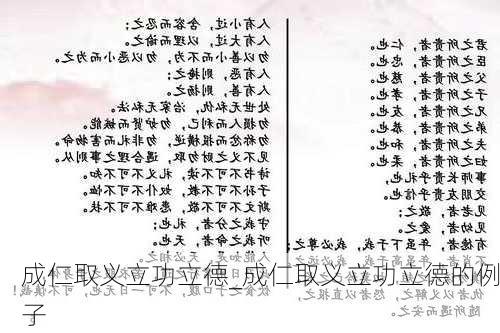 君之所贵者，仁也。
臣之所贵者，忠也。
父之所贵者，慈也。
子之所贵者，孝也。
兄之所贵者，友也。
弟之所贵者，恭也。
夫之所贵者，和也。
妇之所贵者，柔也。
事师长贵乎礼也，
交朋友贵乎信也。
见老者，敬之；
见幼者，爱之。
有德者，年虽下于我，我必尊之；
不肖者，年虽高于我，我必远之。
仇者以义解之，怨者以直报之，
随所遇而安之。
人有小过，含容而忍之；
人有大过，以理而谕之。
勿以善小而不为，勿以恶小而为之。
人有恶，则掩之；
人有善，则扬之。
处世无私仇，治家无私法。
勿损人而利己，勿妒贤而嫉能。
勿称忿而报横逆，勿非礼而害物命。
见不义之财勿取，遇合理之事则从。
诗书不可不读，礼义不可不知。
子孙不可不教，奴仆不可不恤。
斯文不可不敬，患难不可不扶。
守我之分者，礼也；
听我之命者，天也。
人能如是，天必相之。
饮食之于口腹，不可一日无也，可不慎哉！
成仁取义立功立德_成仁取义立功立德的例
子